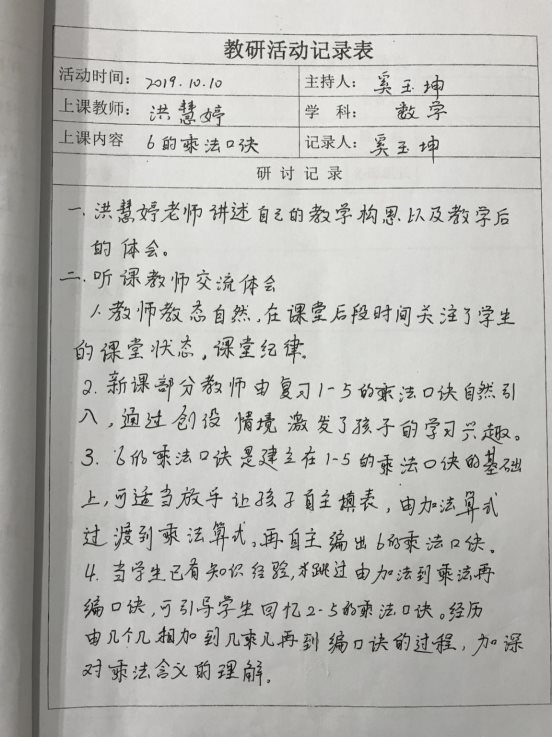 教研活动记录表
活动时间： 2019.10.10 主持人： 奚玉坤
上课教师： 洪慧婷 学 科： 数学
上课内容 6的乘法口诀 记录人： 奚玉坤
研 讨 记 录
一、洪慧婷老师讲述自己的教学构思以及教学后
的体会。
二、听课教师交流体会
1、教师教态自然，在课堂后段时间关注了学生
的课堂状态，课堂纪律。
2. 新课部分教师由复习1-5的乘法口诀自然引
入，通过创设情境激发了孩子的学习兴趣。
3. 6的乘法口诀是建立在1-5的乘法口诀的基础
上，可适当放手让孩子自主填表，由加法算式
过渡到乘法算式，再自主编出6的乘法口诀。
4. 当学生已有知识经验，求跳过由加法到乘法再
编口诀，可引导学生回忆2-5的乘法口诀。经历
由几个几相加到几乘几再到编口诀的过程，加深
对乘法含义的理解。